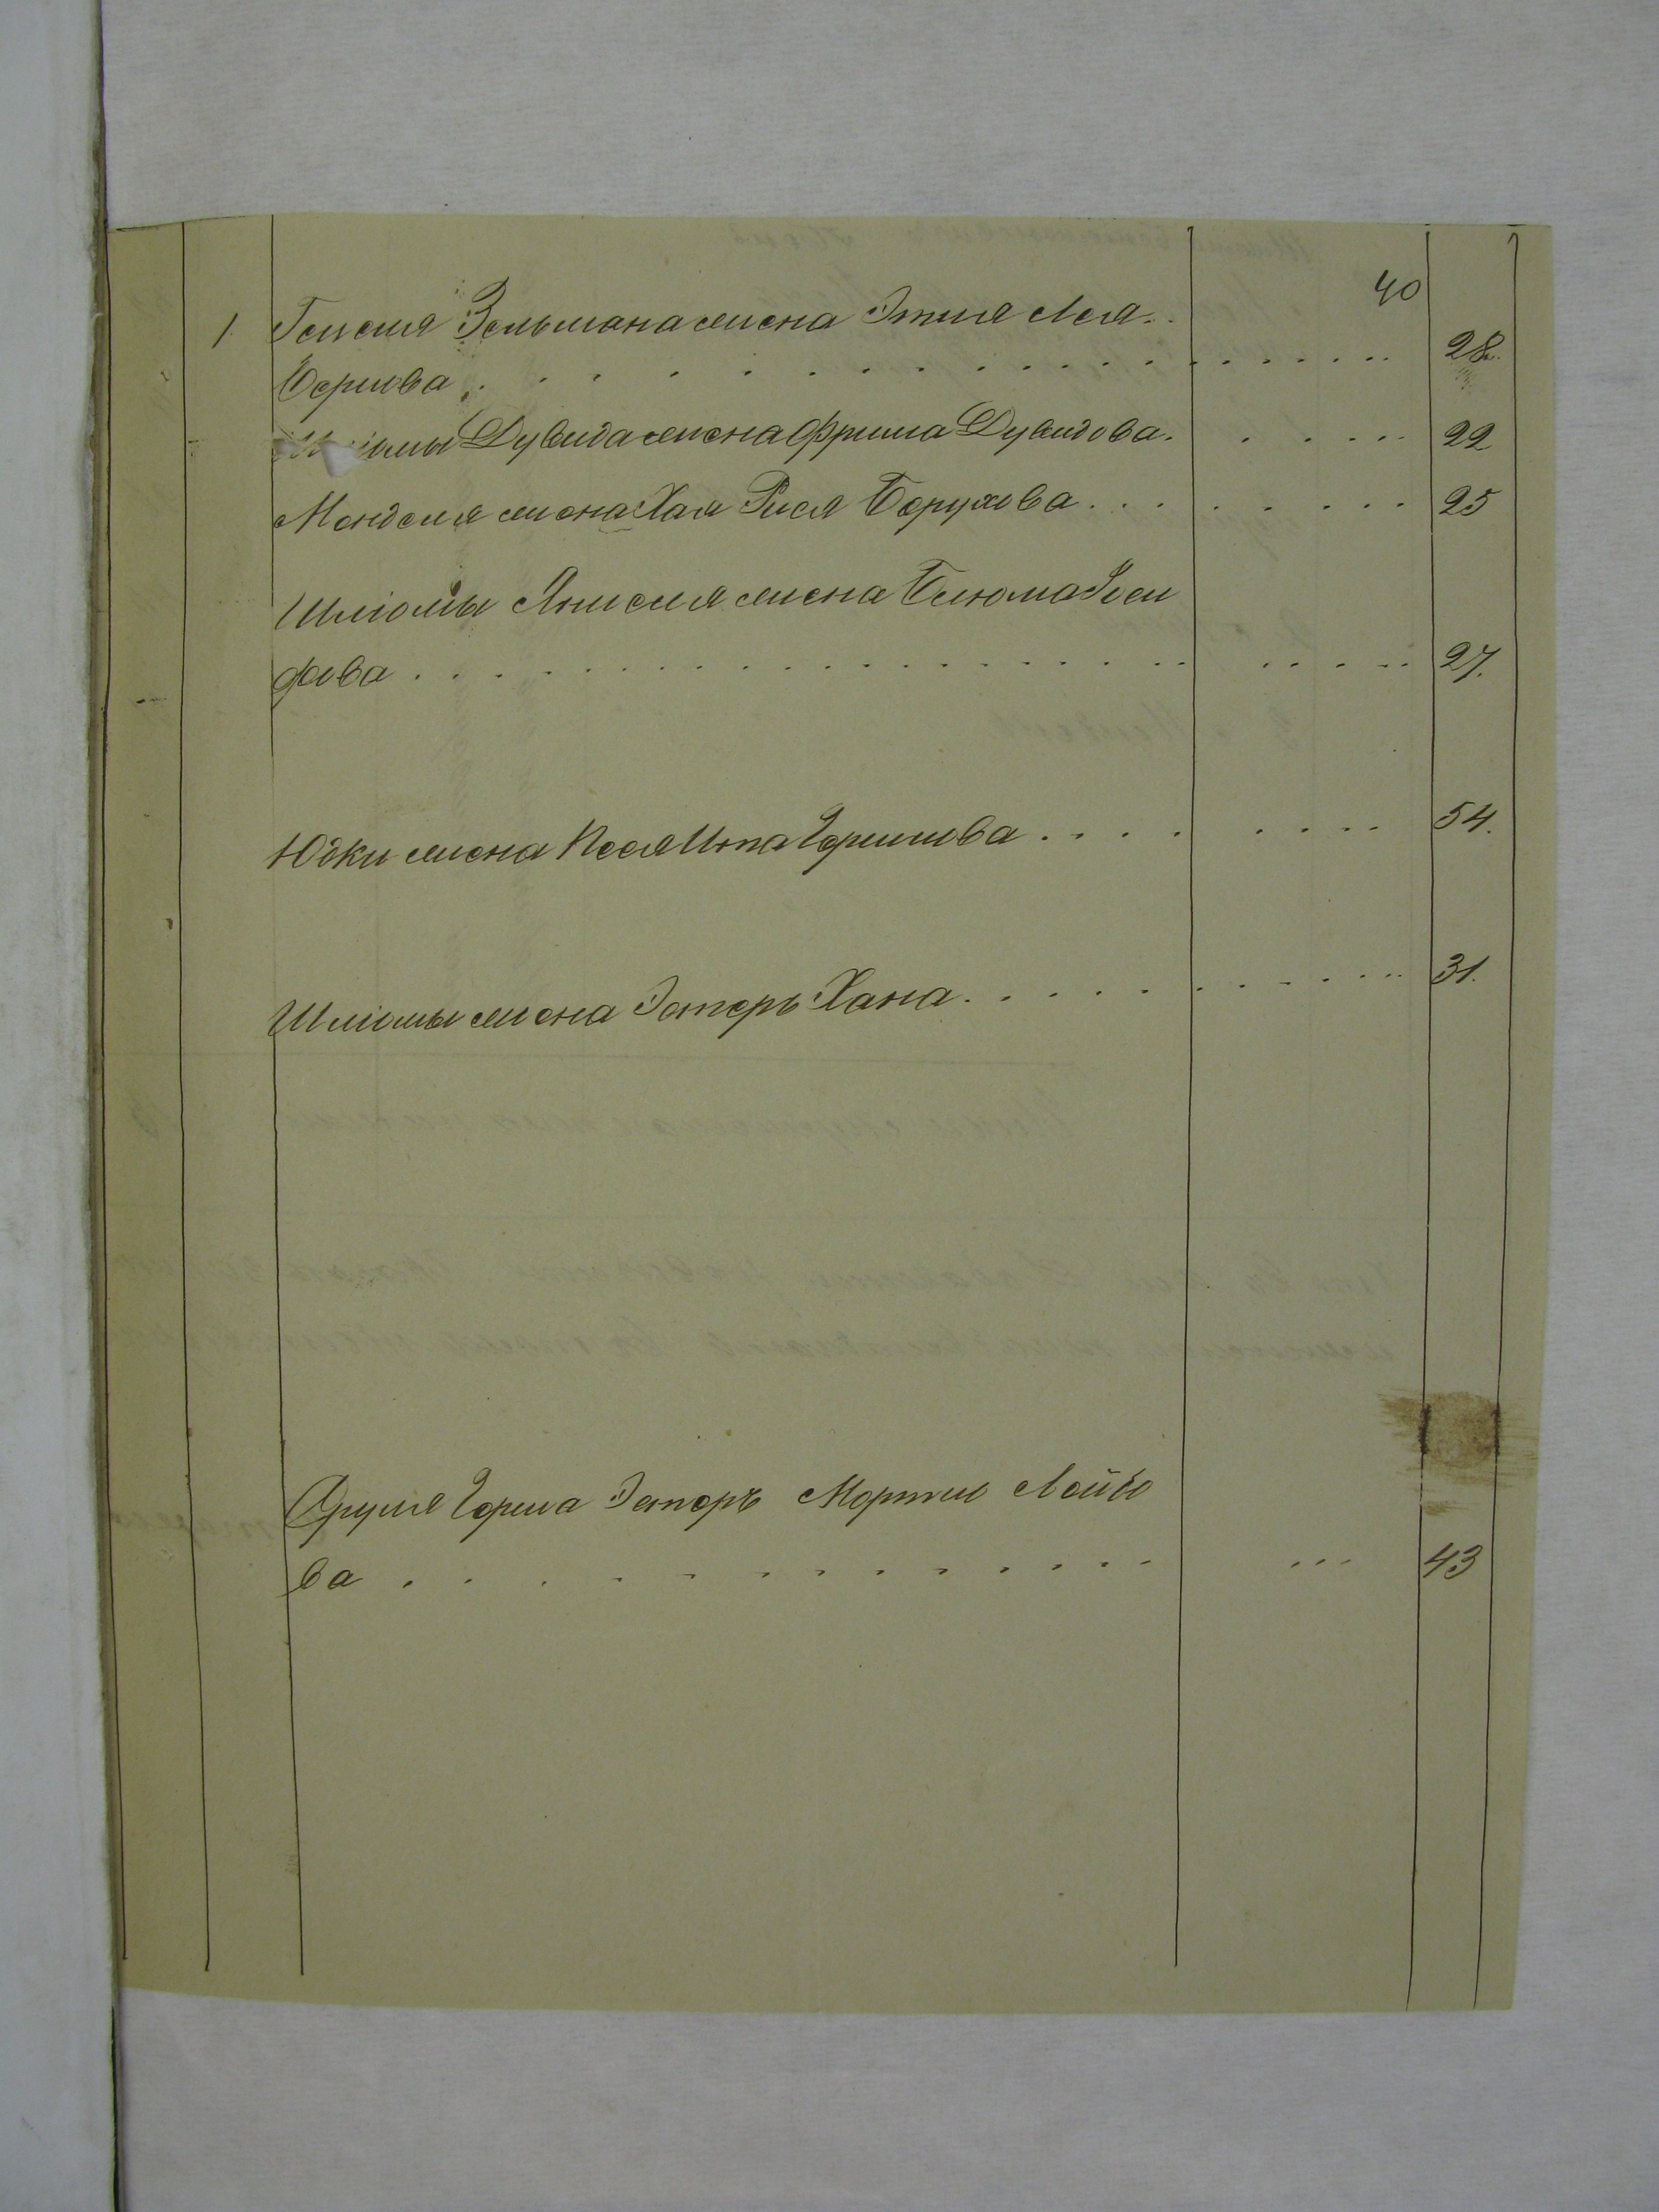 40
1. Гецеля Зельмана жена Этля Лея
Беркова . . . . . . . . . . . . . . . 28.
Дувида жена Фрима Дувидова . . . . . 22
Менделя жена Хая Рися Борухова . . . . . . . . 25
Шліомы Янкеля жена Блюма Іосе
фова . . . . . . . . . . . . . . . . . . . . 27.
Юдки жена Песя Ита Гершкова . . . . . . . . 54.
Шліомы жена Эстеръ Хана . . . . . . . . . . . 31.
Сруля Герша Эстеръ Лейбо
ва . . . . . . . . . . . . . . . 43